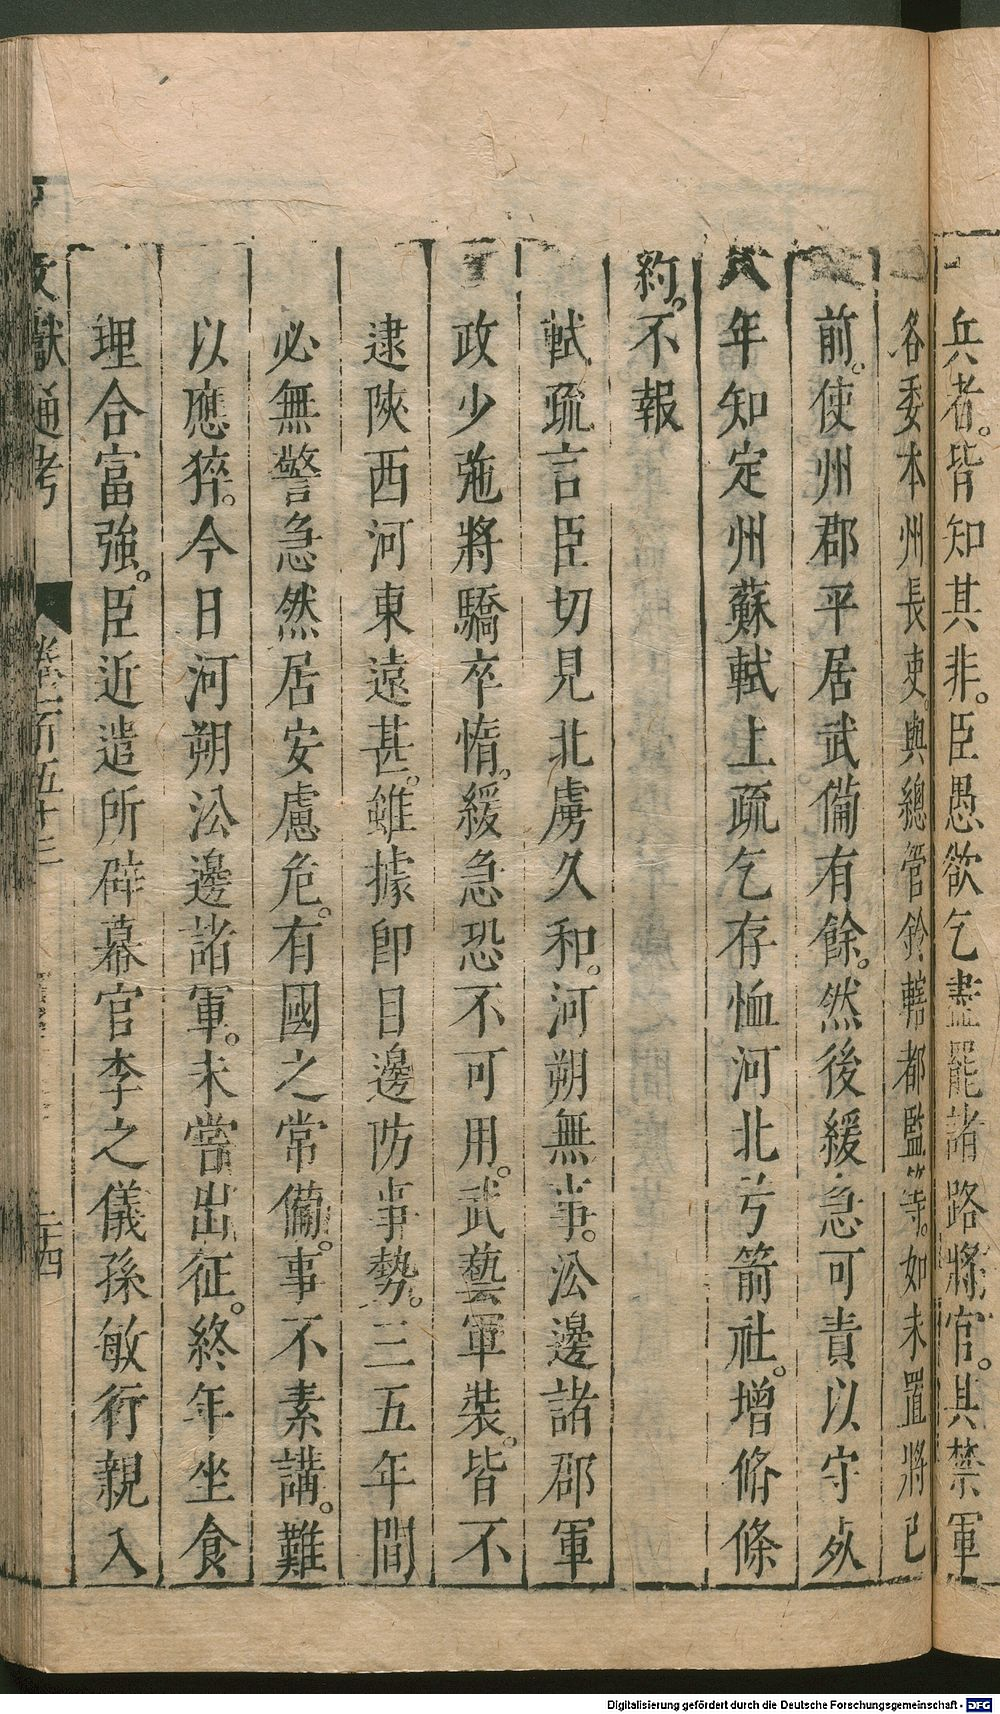 兵者。皆知其非。臣愚欲乞盡罷諸路將官。其禁軍
各委本州長吏。與總管鈴轄都監等。如未置將已
前。使州郡平居武備有餘。然後緩急可責以守死
八年知定州蘇軾上疏乞存恤河北弓箭社。增脩條
約。不報
軾疏言臣切見北虜久和。河朔無事。沿邊諸郡軍
政少弛將驕卒惰。緩急恐不可用。武藝軍裝。皆不
逮陝西河東遠甚。雖據即日邊防事勢。三五年間
必無警急然居安慮危。有國之常備。事不素講。難
以應猝。今日河朔沿邊諸軍。未嘗出征。終年坐食
理合富強。臣近遣所辟幕官李之儀孫敏行親入
文獻通考 卷一百五十三 二十四
Digitalisierung gefördert durch die Deutsche Forschungsgemeinschaft - DFG